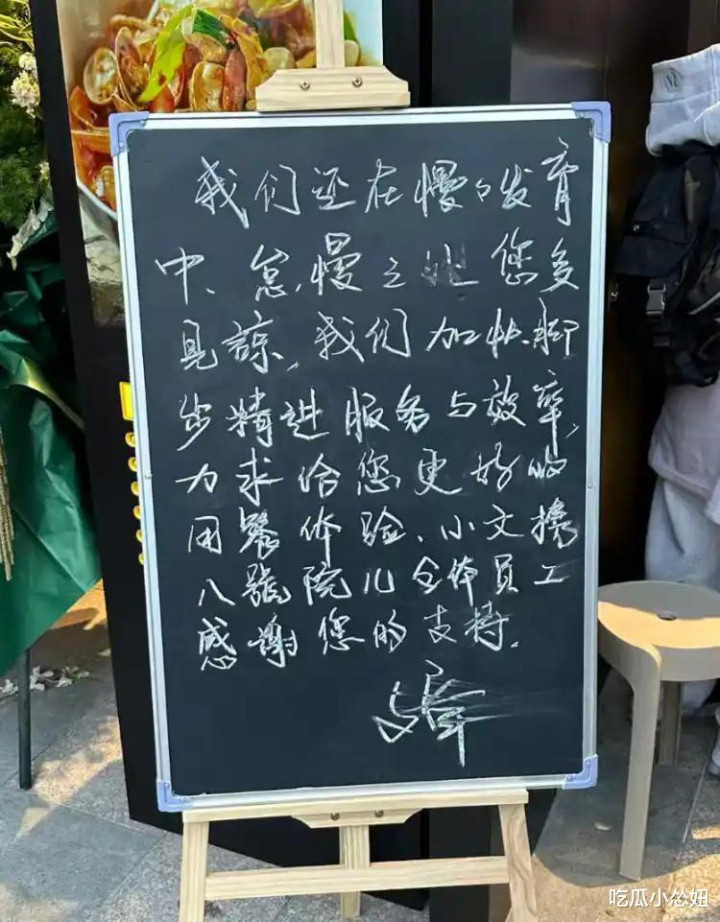 我们还在慢々发育
中、怠慢之处您多
见谅，我们加快脚
步精进服务与效率，
力求给您更好的
用餐体验、小文携
八號院儿全体员工
感谢您的支持.
吃瓜小怂妞